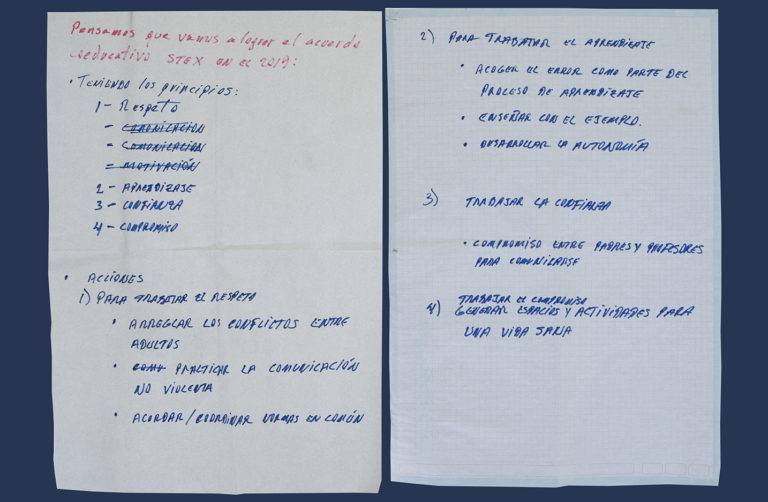 Pensamos que vamos a lograr el acuerdo
coeducativo STEX en el 2019:
• Teniendo los principios:
1 - Respeto
- COMUNICACIÓN
- COMUNICACIÓN
- MOTIVACIÓN
2 - APRENDIZAJE
3 - CONFIANZA
4 - COMPROMISO
• ACCIONES
1) PARA TRABAJAR EL RESPETO
• ARREGLAR LOS CONFLICTOS ENTRE
ADULTOS
• COMO PRACTICAR LA COMUNICACIÓN
NO VIOLENTA
• ACORDAR/COORDINAR NORMAS EN COMÚN
2) PARA TRABAJAR EL APRENDIENTE
• ACOGER EL ERROR COMO PARTE DEL
PROCESO DE APRENDIZAJE
• ENSEÑAR CON EL EJEMPLO.
• DESARROLLAR LA AUTONOMÍA
3) TRABAJAR LA CONFIANZA
• COMPROMISO ENTRE PADRES Y PROFESORES
PARA COMUNICARSE
TRABAJAR EL COMPROMISO
4) GENERAR ESPACIOS Y ACTIVIDADES PARA
UNA VIDA SANA